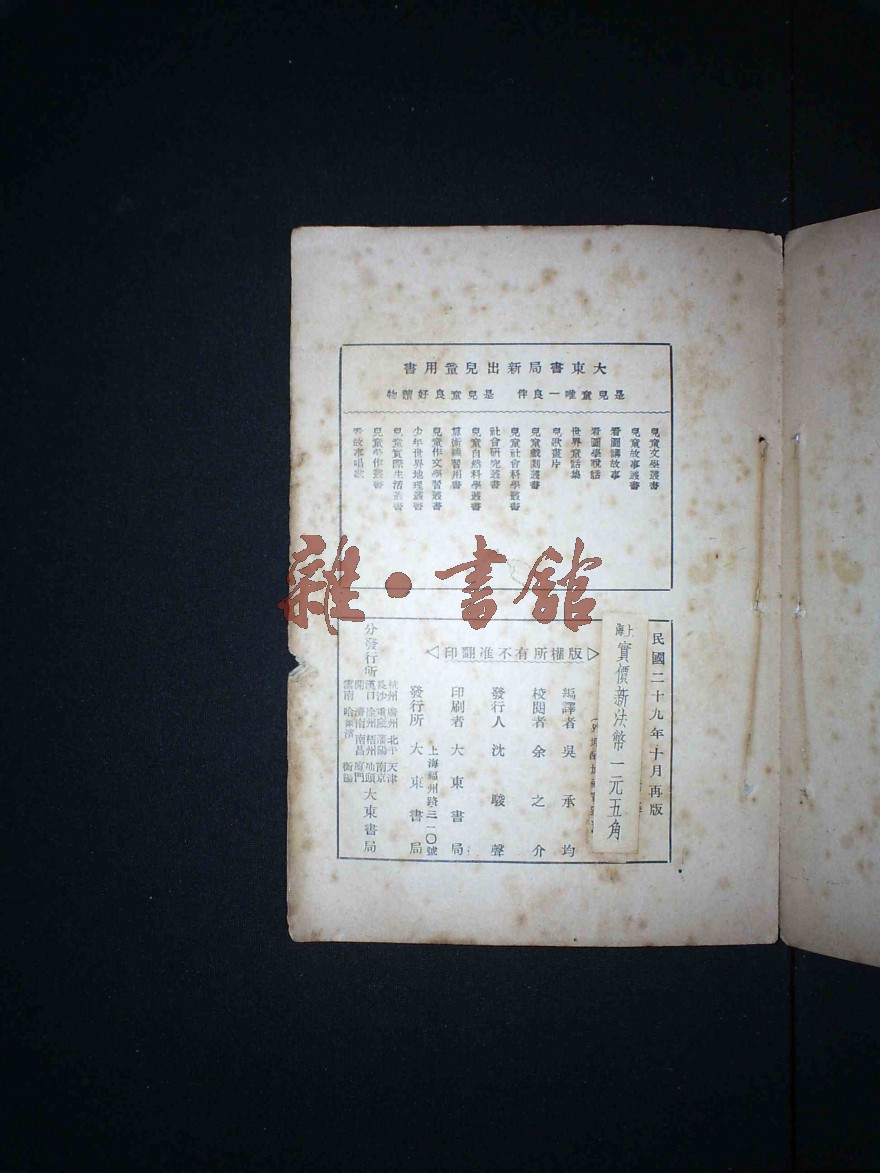 大東書局新出兒童用書
是兒童唯一良伴 是兒童良好讀物
兒童文學叢書
兒童故事叢書
看圖講故事
看圖學說話
世界童話集
兒歌畫片
兒童戲劇叢書
兒童社會科學叢書
社會研究叢書
兒童自然科學叢書
算術練習用書
兒童作文學習叢書
少年世界地理叢書
兒童實際生活叢書
兒童勞作叢書
看故事唱歌
雜·書館
民國二十九年十月再版
上海實價新法幣一元五角
▷版權所有不准翻印◁
編譯者 吳承均
校閱者 余之介
發行人 沈駿聲
印刷者 大東書局
上海福州路三一〇號
發行所 大東書局
分發行所
杭州 廣州 北平 天津
長沙 重慶 瀋陽 南京
漢口 徐州 梧州 汕頭
開封 濟南 南昌 廈門
雲南 哈爾濱 衡陽
大東書局